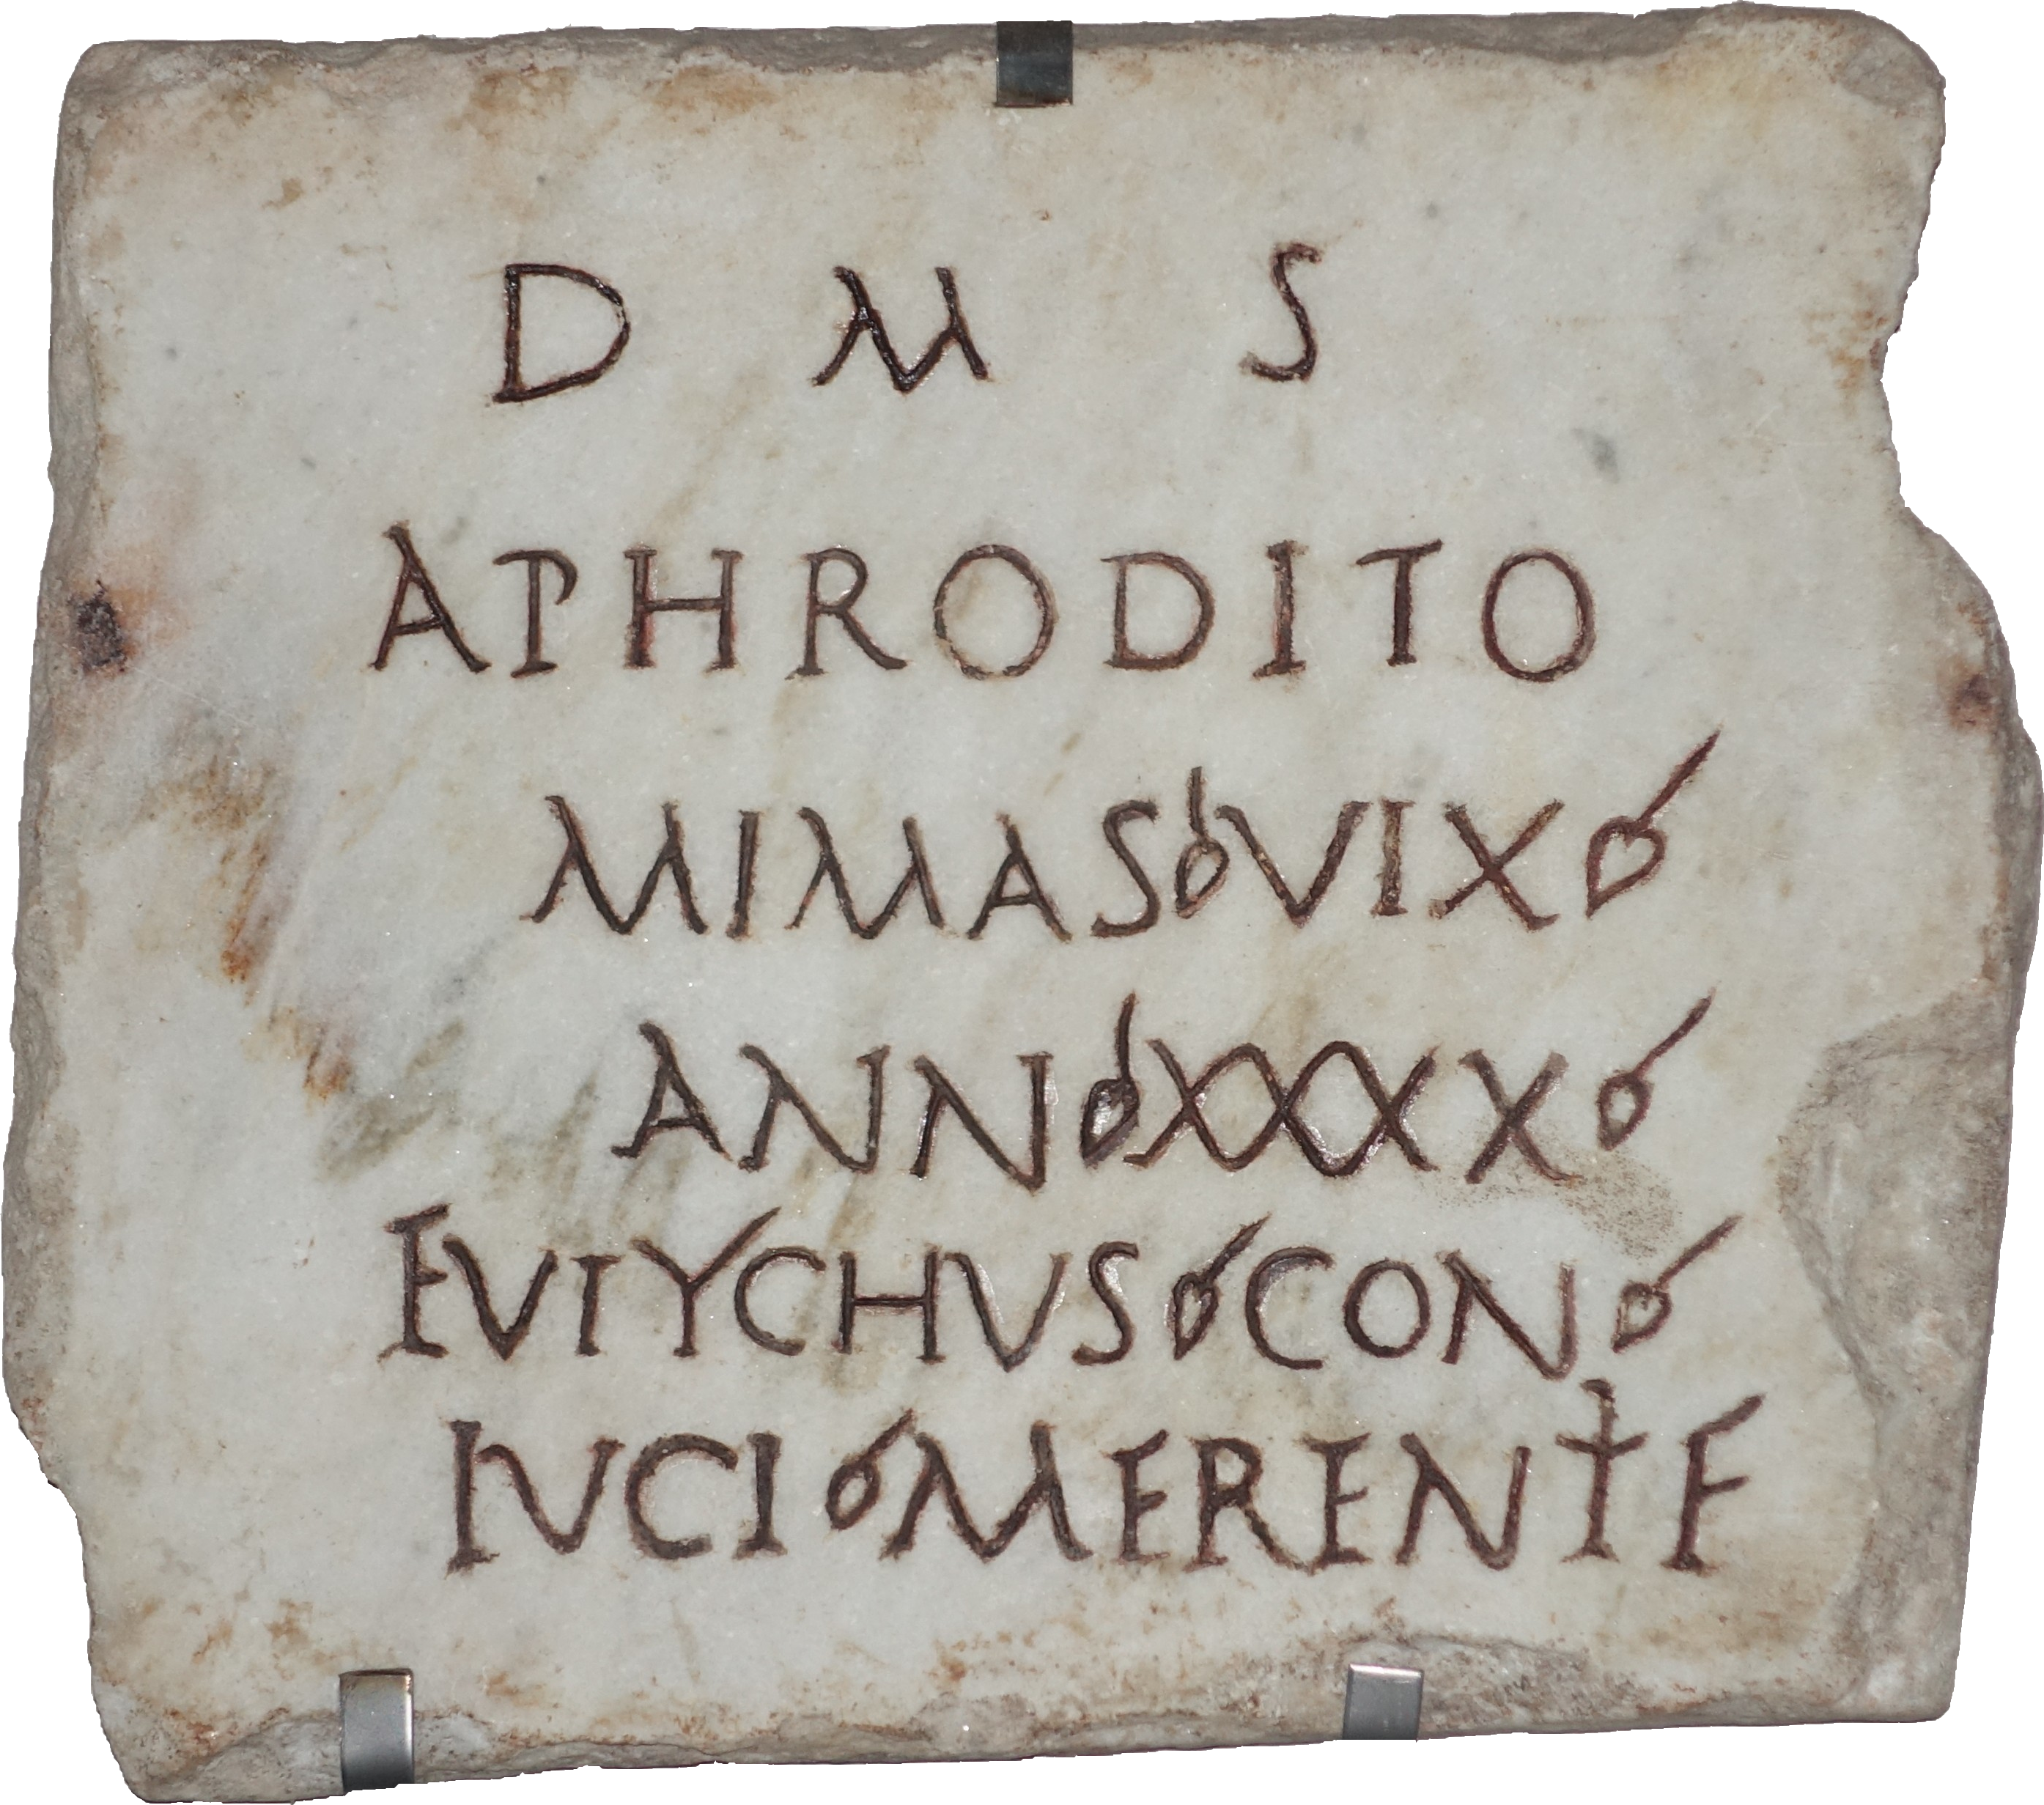 D M S
APHRODITO
MIMAS VIX
ANN XXXX
EVTYCHVS CON
IVCI MERENTE